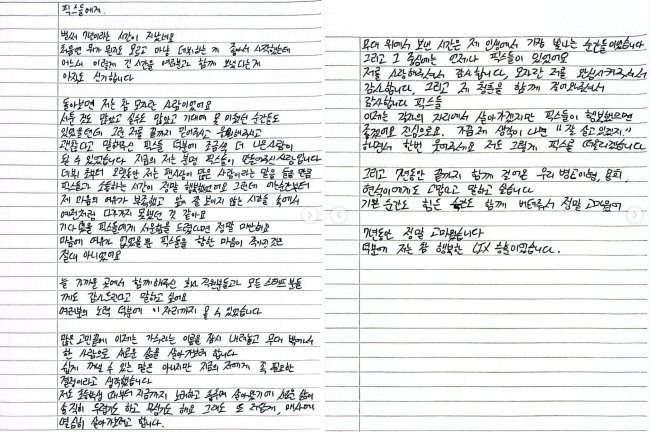 픽스들에게.
벌써 7년이라는 시간이 지났네요
처음엔 뭐가 뭔지도 모르고 마냥 데뷔하는 게 좋아서 시작했는데
어느새 이렇게 긴 시간을 여러분과 함께 보냈다는게
아직도 신기합니다
돌아보면 저는 참 모자란 사람이었어요
서툰 것도 많았고 실수도 많았고 기대에 못 미쳤던 순간들도
있었을텐데 그런 저를 끝까지 믿어주시고 응원해주시고
괜찮다고 말해주는 픽스들 덕분에 조금씩 더 나은 사람이
될 수 있었습니다 지금의 저는 분명 픽스들이 만들어주신 사람입니다
데뷔 초부터 오랫동안 저는 팬사랑이 많은 사람이라는 말을 들을 만큼
픽스들과 소통하는 시간이 정말 행복했었어요 그런데 어느순간부터
제 마음의 여유가 부족했고 앞이 잘 보이지 않는 시간들 속에서
예전처럼 다가가지 못했던 것 같아요
기다렸을 픽스들에게 서운함을 드렸다면 정말 미안해요
마음에 여유가 없었을 뿐 픽스들을 향한 마음이 작아진 것은
절대 아니었어요
늘 가까운 곳에서 함께해주신 회사 직원분들과 모든 스태프분들
께도 감사드린다고 말하고 싶어요
여러분의 노력 덕분에 이 자리까지 올 수 있었습니다
많은 고민끝에 이제는 가수라는 이름을 잠시 내려놓고 무대 밖에서
한 사람으로 새로운 삶을 살아가보려 합니다
쉽게 꺼낼 수 있는 말은 아니지만 지금의 저에게 꼭 필요한
결정이라고 생각했습니다
저도 초등학생 때부터 지금까지 노래하고 춤추며 살아왔기에 새로운 삶이
솔직히 두렵기도 하고 무섭기도 해요 그래도 또 저답게, 매사에
열심히 살아가보려고 합니다.
무대 위에서 보낸 시간은 제 인생에서 가장 빛나는 순간들이었습니다
그리고 그 중심에는 언제나 픽스들이 있었어요
저를 사랑해주셔서 감사합니다, 모자란 저를 완성시켜주셔서
감사합니다, 그리고 제 청춘을 함께 걸어와줘서
감사합니다 픽스들
이제는 각자의 자리에서 살아가겠지만 픽스들이 행복했으면
좋겠어요 진심으로요. 가끔 제 생각이 나면 "잘 살고 있겠지"
하면서 한번 웃어주세요 저도 그렇게 픽스를 떠올리겠습니다
그리고 7년동안 끝까지 함께 걸어온 우리 병곤이형, 용희,
현석이에게도 고맙다고 말하고 싶습니다
기쁜 순간도 힘든 순간도 함께 버텨줘서 정말 고마웠어
7년동안 정말 고마웠습니다
덕분에 저는 참 행복한 CIX 승훈이었습니다.